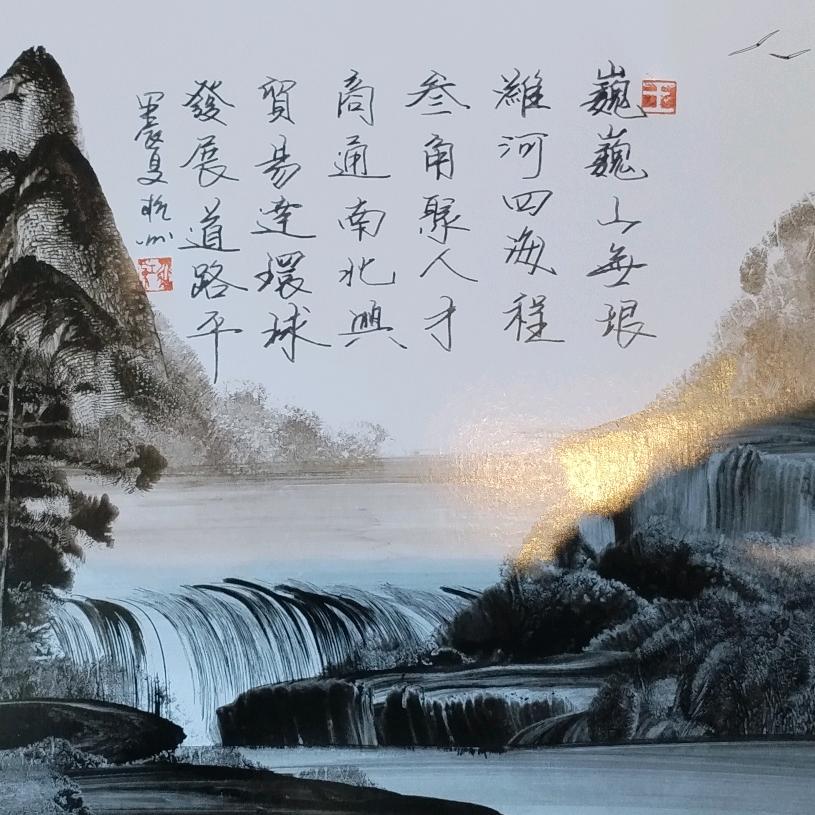 巍巍山無垠
濰河四海程
叁角聚人才
商通南北興
貿易達環球
發展道路平
甲辰夏杭州
王